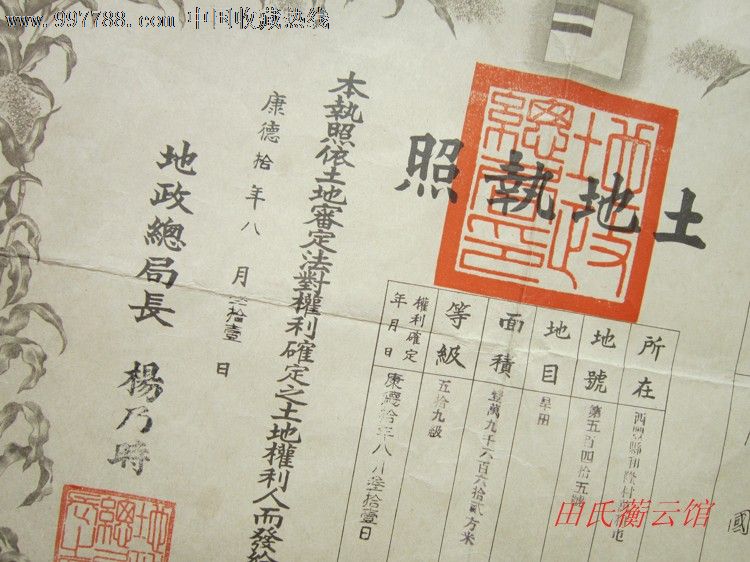 www.997788.com 中国收藏热线
土地執照
所在
西豐縣
地號
第五百四拾五號
地目
旱田
面積
壹萬九千六百六拾貳方米
等級
五拾九級
權利確定
年月日
康德拾年八月叁拾壹日
本執照依土地審定法對權利確定之土地權利人而發給
康德拾年八月叁拾壹日
地政總局長 楊乃時
地政總局之印
國
田氏蘅云馆